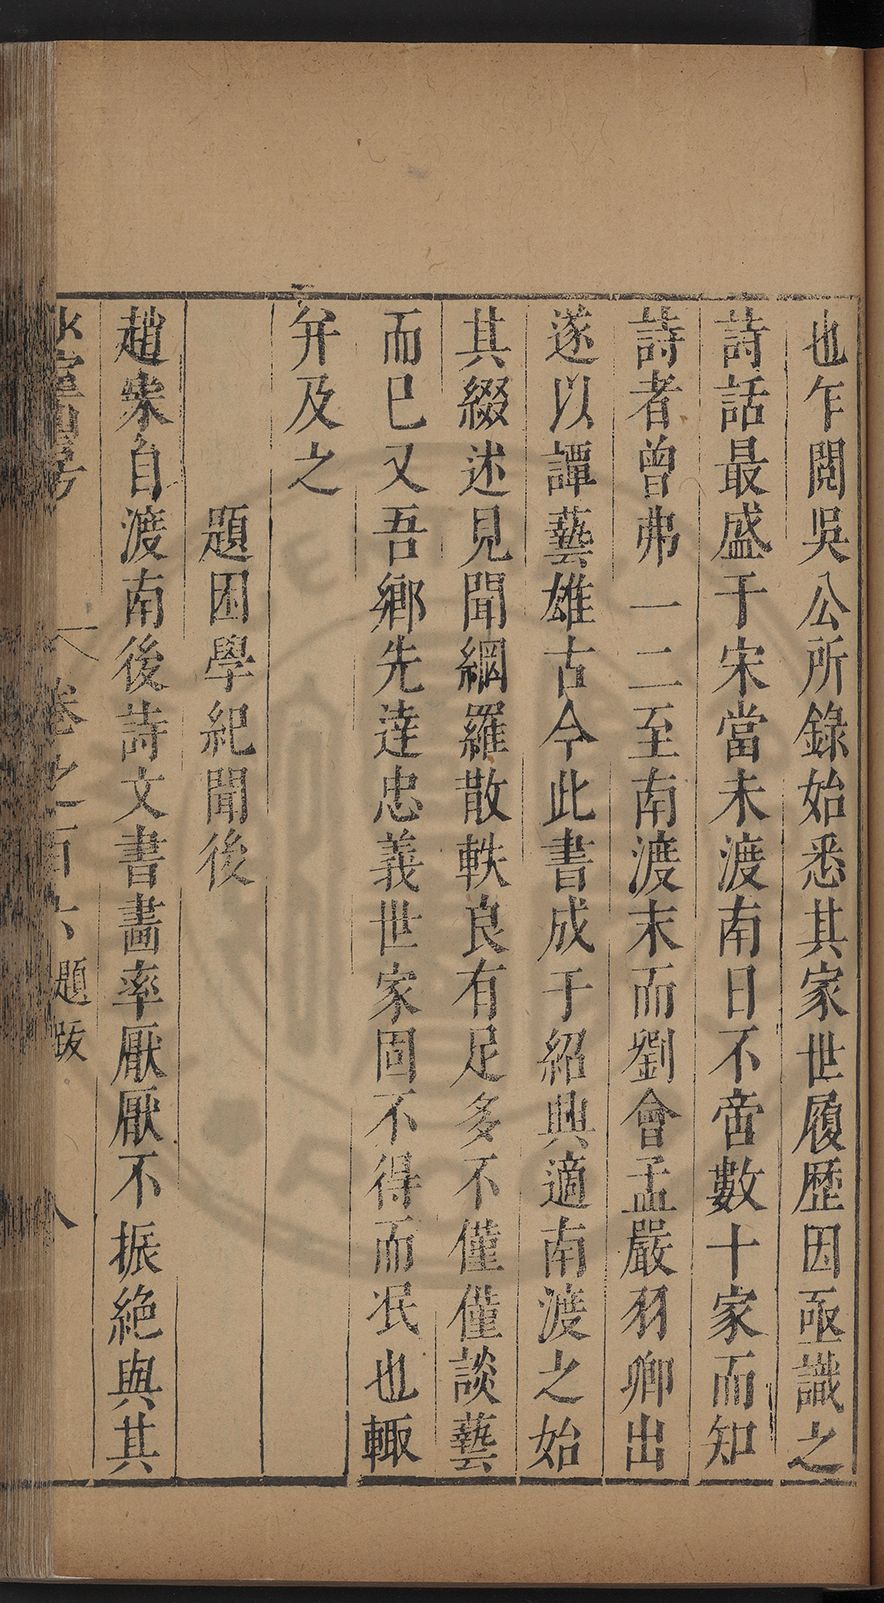 也乍閲吳公所錄始悉其家世履歷因亟識之
詩話最盛于宋當未渡南日不啻數十家而知
詩者曾弗一二至南渡末而劉會孟嚴羽卿出
遂以譚藝雄古今此書成于紹興適南渡之始
其綴述見聞網羅散軼良有足多不僅僅談藝
而已又吾鄉先達忠義世家固不得而泯也輙
并及之
題困學紀聞後
趙宋自渡南後詩文書畵率厭厭不振絶與其
卷之百六 題跋 八